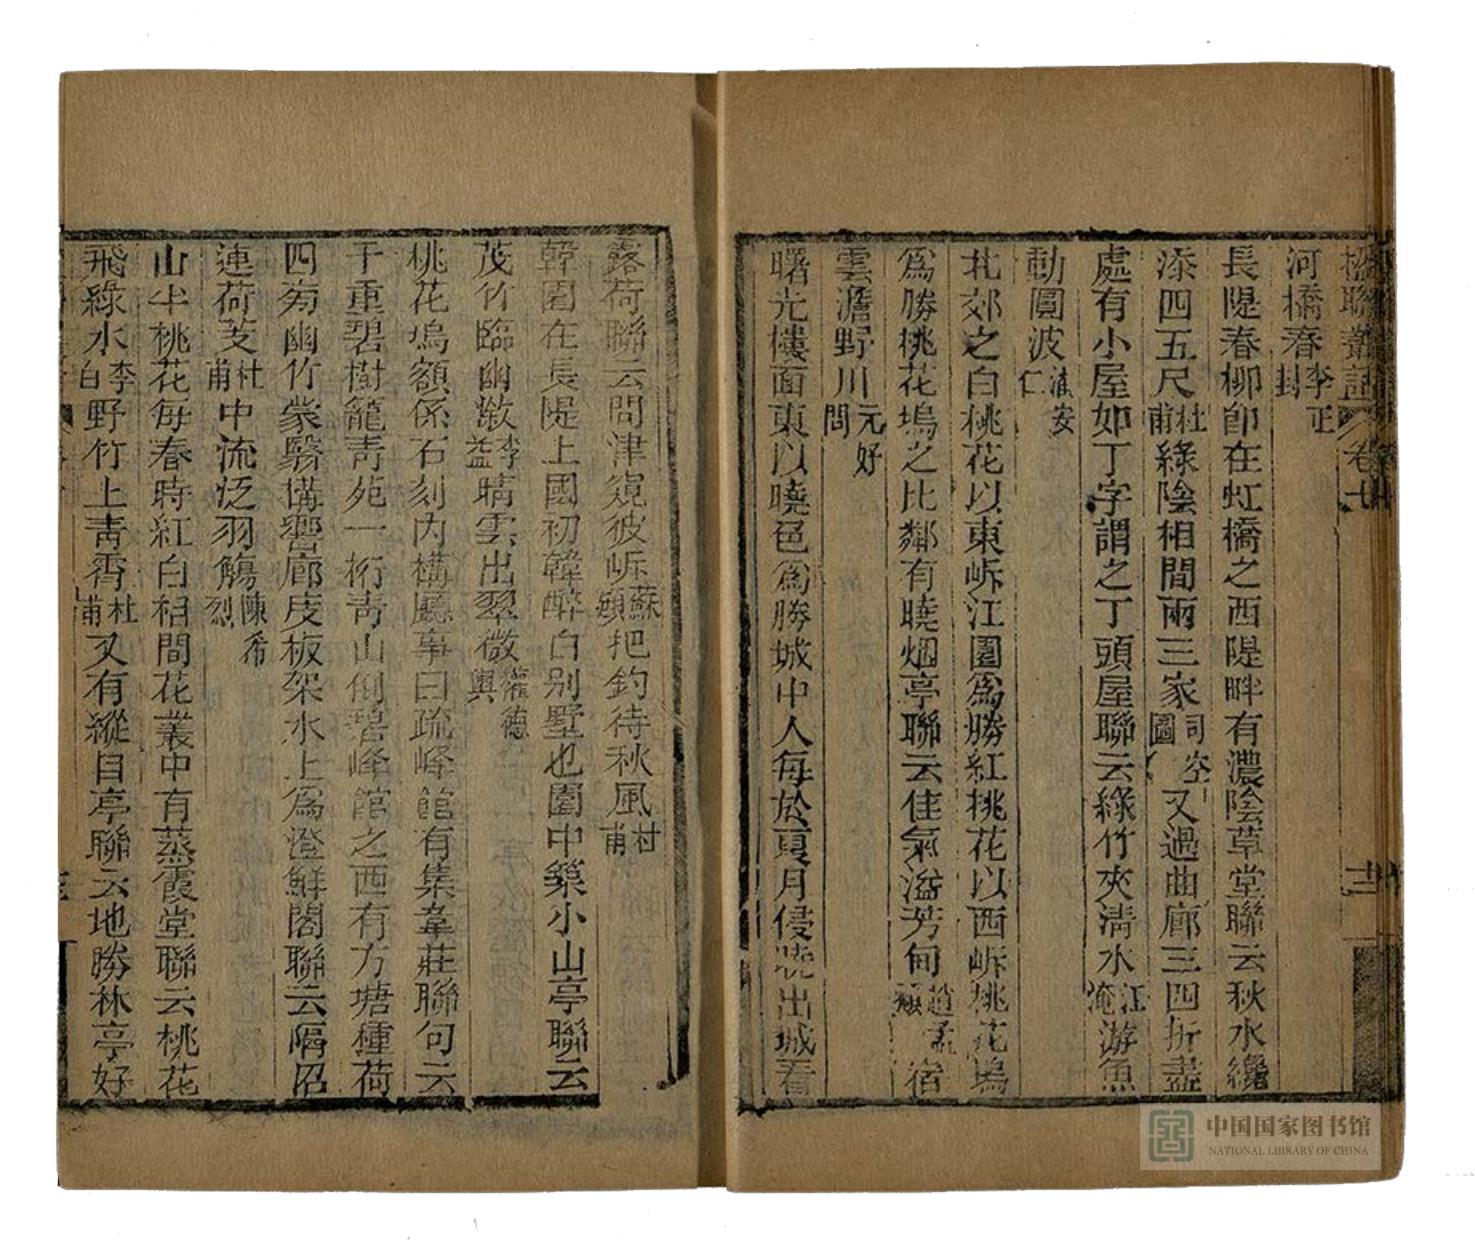 楹聯叢話 卷七 十二
河橋春李正封
長隄春柳卽在虹橋之西隄畔有濃陰草堂聯云秋水纔
添四五尺杜甫綠陰相間兩三家司空圖又過曲廊三四折盡
處有小屋如丁字謂之丁頭屋聯云綠竹夾淸水江淹游魚
動圓波潘安仁
北郊之白桃花以東岍江園爲勝紅桃花以西岍桃花塢
爲勝桃花塢之比鄰有曉烟亭聯云佳氣溢芳甸趙孟頫宿
雲澹野川元好問
曙光樓面東以曉色爲勝城中人每於夏月侵曉出城看
露荷聯云問津窺彼岍蘇頲把釣待秋風杜甫
韓園在長隄上國初韓醉白别墅也園中築小山亭聯云
茂竹臨幽溆李益晴雲出翠微權德輿
桃花塢額係石刻內構廳事曰疏峰館有集韋莊聯句云
千重碧樹籠靑苑一桁靑山倒碧峰館之西有方塘種荷
四旁幽竹蒙翳構響廊庋板架水上爲澄鮮閣聯云隔沼
連荷芰杜甫中流泛羽觴陳希烈
山半桃花每春時紅白相間花叢中有蒸霞堂聯云桃花
飛綠水李白野竹上靑霄杜甫又有縱目亭聯云地勝林亭好
中国国家图书馆
NATIONAL LIBRARY OF CHINA